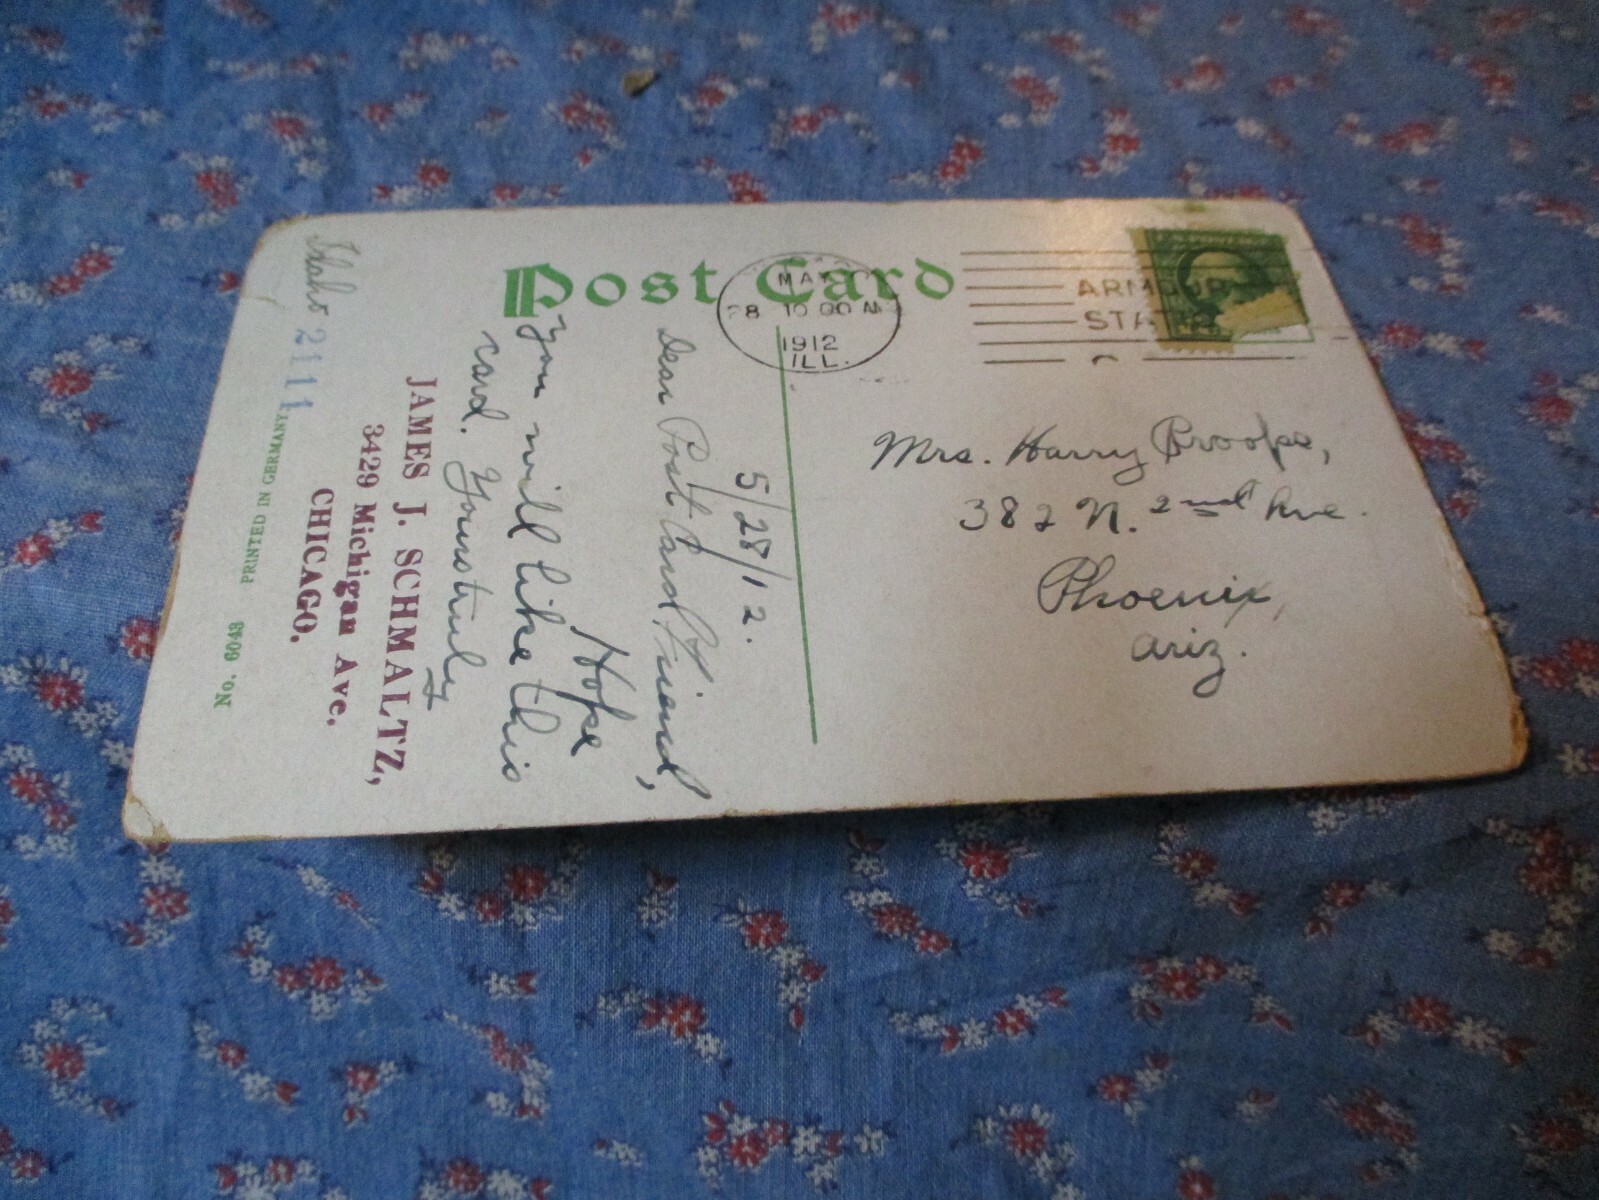 Post Card
MAY
28 10 00 AM
1912
ILL.
ARMOUR
STA
Mrs. Harry
382 N. 2nd Ave.
Phoenix,
Ariz.
5/28/12.
Dear Post Card Friend,
Hope
you will like this
card. Yours truly
JAMES J. SCHMALTZ,
3429 Michigan Ave.
CHICAGO.
Idaho 2111
No. 6048 PRINTED IN GERMANY